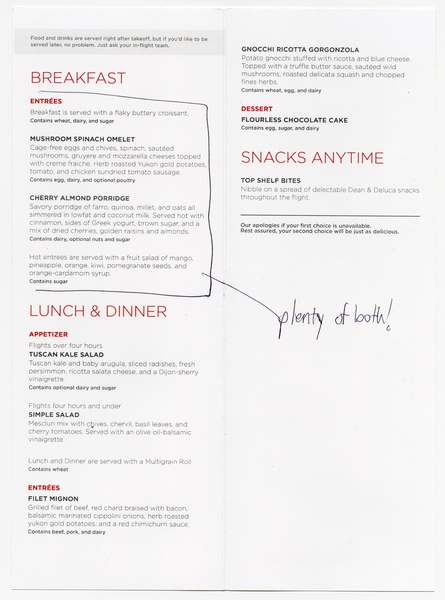 Food and drinks are served right after takeoff, but if you'd like to be
served later, no problem. Just ask your in-flight team.
BREAKFAST
ENTRÉES
Breakfast is served with a flaky buttery croissant.
Contains wheat, dairy, and sugar
MUSHROOM SPINACH OMELET
Cage-free eggs and chives, spinach, sautéed
mushrooms, gruyere and mozzarella cheeses topped
with creme fraiche. Herb roasted Yukon gold potatoes,
tomato, and chicken sundried tomato sausage.
Contains egg, dairy, and optional poultry
CHERRY ALMOND PORRIDGE
Savory porridge of farro, quinoa, millet, and oats all
simmered in lowfat and coconut milk. Served hot with
cinnamon, sides of Greek yogurt, brown sugar, and a
mix of dried cherries, golden raisins and almonds.
Contains dairy, optional nuts and sugar
Hot entrees are served with a fruit salad of mango,
pineapple, orange, kiwi, pomegranate seeds, and
orange-cardamom syrup.
Contains sugar
LUNCH & DINNER
APPETIZER
Flights over four hours
TUSCAN KALE SALAD
Tuscan kale and baby arugula, sliced radishes, fresh
persimmon, ricotta salata cheese, and a Dijon-sherry
vinaigrette.
Contains optional dairy and sugar
Flights four hours and under
SIMPLE SALAD
Mesclun mix with chives, chervil, basil leaves, and
cherry tomatoes. Served with an olive oil-balsamic
vinaigrette.
Lunch and Dinner are served with a Multigrain Roll
Contains wheat
ENTRÉES
FILET MIGNON
Grilled filet of beef, red chard braised with bacon,
balsamic marinated cippolini onions, herb roasted
yukon gold potatoes, and a red chimichurri sauce.
Contains beef, pork, and dairy
GNOCCHI RICOTTA GORGONZOLA
Potato gnocchi stuffed with ricotta and blue cheese.
Topped with a truffle butter sauce, sautéed wild
mushrooms, roasted delicata squash and chopped
fines herbs.
Contains wheat, egg, and dairy
DESSERT
FLOURLESS CHOCOLATE CAKE
Contains egg, sugar, and dairy
SNACKS ANYTIME
TOP SHELF BITES
Nibble on a spread of delectable Dean & Deluca snacks
throughout the flight.
Our apologies if your first choice is unavailable.
Rest assured, your second choice will be just as delicious.
plenty of both!